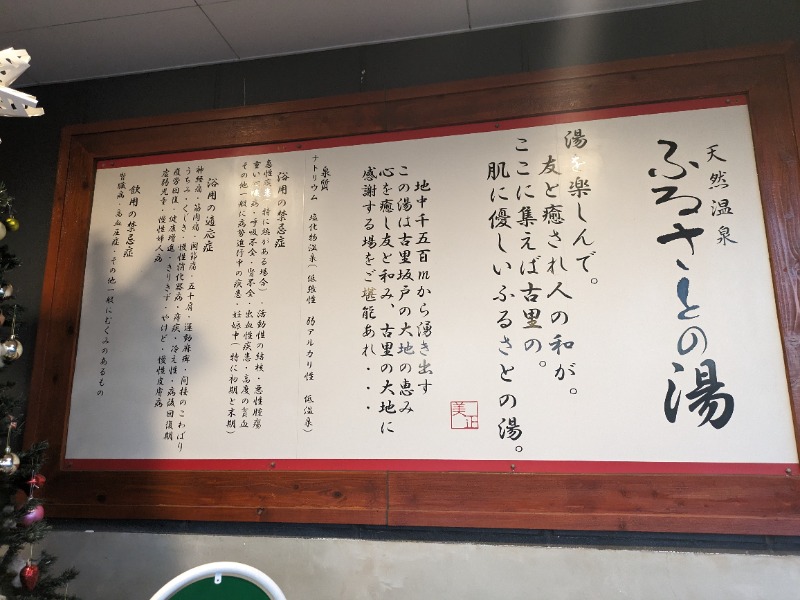 天然温泉
ふるさとの湯
湯を楽しんで。
友と癒され人の和が。
ここに集えば古里の。
肌に優しいふるさとの湯。
美正
地中千五百mから湧き出す
この湯は古里坂戸の大地の恵み
心を癒し友と和み、古里の大地に
感謝する場をご堪能あれ・・・
泉質
ナトリウム 塩化物温泉(低張性 弱アルカリ性 低温泉)
浴用の禁忌症
急性疾患(特に熱がある場合)・活動性の結核・悪性腫瘍
重い心臓病・呼吸不全・腎不全・出血性疾患・高度の貧血
その他一般に病勢進行中の疾患・妊娠中(特に初期と末期)
浴用の適応症
神経痛・筋肉痛・関節痛・五十肩・運動麻痺・関節のこわばり
うちみ・くじき・慢性消化器病・痔疾・冷え性・病後回復期
疲労回復・健康増進・きりきず・やけど・慢性皮膚病
虚弱児童・慢性婦人病
飲用の禁忌症
腎臓病・高血圧症・その他一般にむくみのあるもの